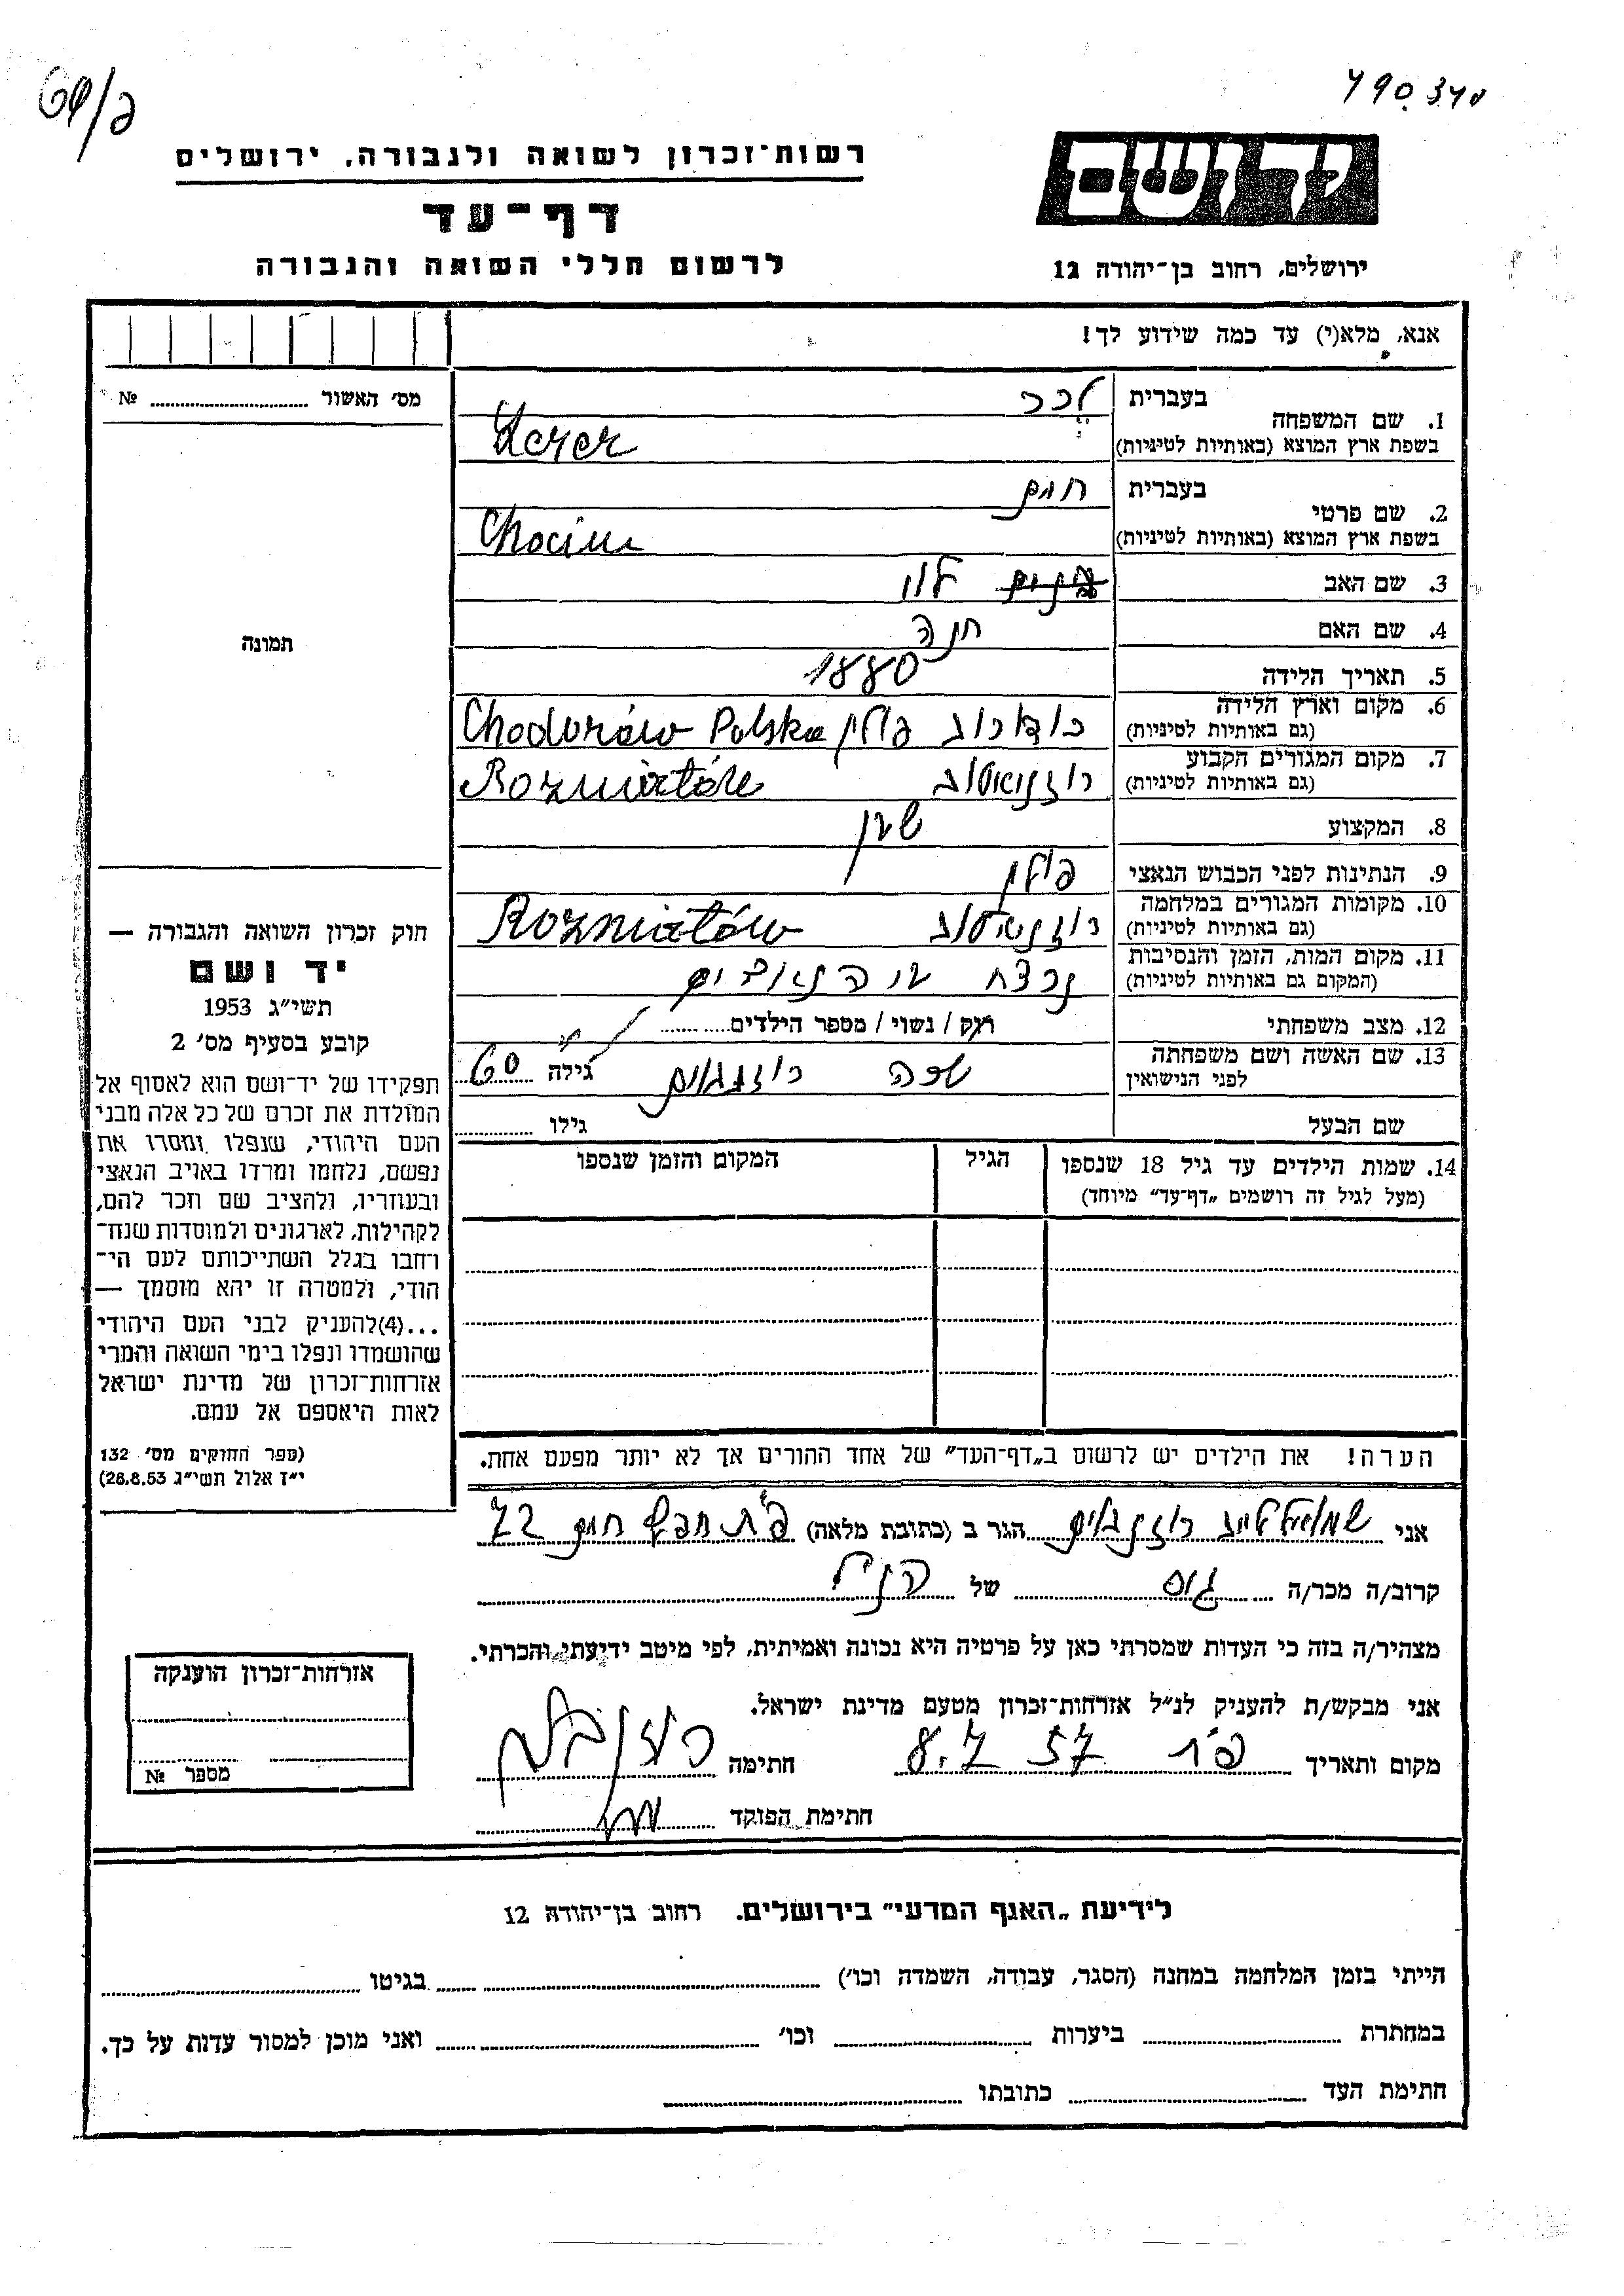 790340
69/ב
יד ושם
רשות-זכרון לשואה ולגבורה, ירושלים
דף-עד
לרשום חללי השואה והגבורה
ירושלים, רחוב בן-יהודה 12
אנא, מלא(י) עד כמה שידוע לך!
מס׳ האשור № ........
תמונה
חוק זכרון השואה והגבורה —
יד ושם
תשי״ג 1953
קובע בסעיף מס׳ 2
תפקידו של יד-ושם הוא לאסוף אל
המולדת את זכרם של כל אלה מבני
העם היהודי, שנפלו ומסרו את
נפשם, נלחמו ומרדו באויב הנאצי
ובעוזריו, ולהציב שם וזכר להם,
לקהילות, לארגונים ולמוסדות שנח-
רחבו בגלל השתייכותם לעם הי-
הודי, ולמטרה זו יהא מוסמך —
...(4)להעניק לבני העם היהודי
שהושמדו ונפלו בימי השואה והמרי
אזרחות-זכרון של מדינת ישראל
לאות היאספם אל עמם.
(ספר החוקים מס׳ 132
י״ז אלול תשי״ג 28.8.53)
1. שם המשפחה בעברית לרר
בשפת ארץ המוצא (באותיות לטיניות) Lerer
2. שם פרטי בעברית חיים
בשפת ארץ המוצא (באותיות לטיניות) Chaim
3. שם האב
4. שם האם חנה
5. תאריך הלידה 1880
6. מקום וארץ הלידה (גם באותיות לטיניות) פולין Chodorów Polska
7. מקום המגורים הקבוע (גם באותיות לטיניות) רוזניאטוב Rozniatów
8. המקצוע
9. הנתינות לפני הכבוש הנאצי פולין
10. מקומות המגורים במלחמה (גם באותיות לטיניות) רוזניאטוב Rozniatów
11. מקום המות, הזמן והנסיבות (המקום גם באותיות לטיניות) נרצח ע״י הנאצים
12. מצב משפחתי רוק / נשוי / מספר הילדים........
13. שם האשה ושם משפחתה לפני הנישואין רוזנבוים גילה 60
שם הבעל גילו ........
14. שמות הילדים עד גיל 18 שנספו (מעל לגיל זה רושמים „דף-עד״ מיוחד) הגיל המקום והזמן שנספו
הערה! את הילדים יש לרשום ב„דף-העד״ של אחד ההורים אך לא יותר מפעם אחת.
אני רוזנבוים הגר ב (כתובת מלאה) פ״ת 72
קרוב/ה מכר/ה גיס של הנ״ל
מצהיר/ה בזה כי העדות שמסרתי כאן על פרטיה היא נכונה ואמיתית, לפי מיטב ידיעתי והכרתי.
אני מבקש/ת להעניק לנ״ל אזרחות-זכרון מטעם מדינת ישראל.
מקום ותאריך פ״ת 8.7.57 חתימה רוזנבוים
חתימת הפוקד
אזרחות-זכרון הוענקה
מספר №
לידיעת „האגף המדעי״ בירושלים. רחוב בן-יהודה 12
הייתי בזמן המלחמה במחנה (הסגר, עבודה, השמדה וכו׳) ........ בגיטו ........
במחתרת ........ ביערות ........ וכו׳ ........ ואני מוכן למסור עדות על כך.
חתימת העד ........ כתובתו ........